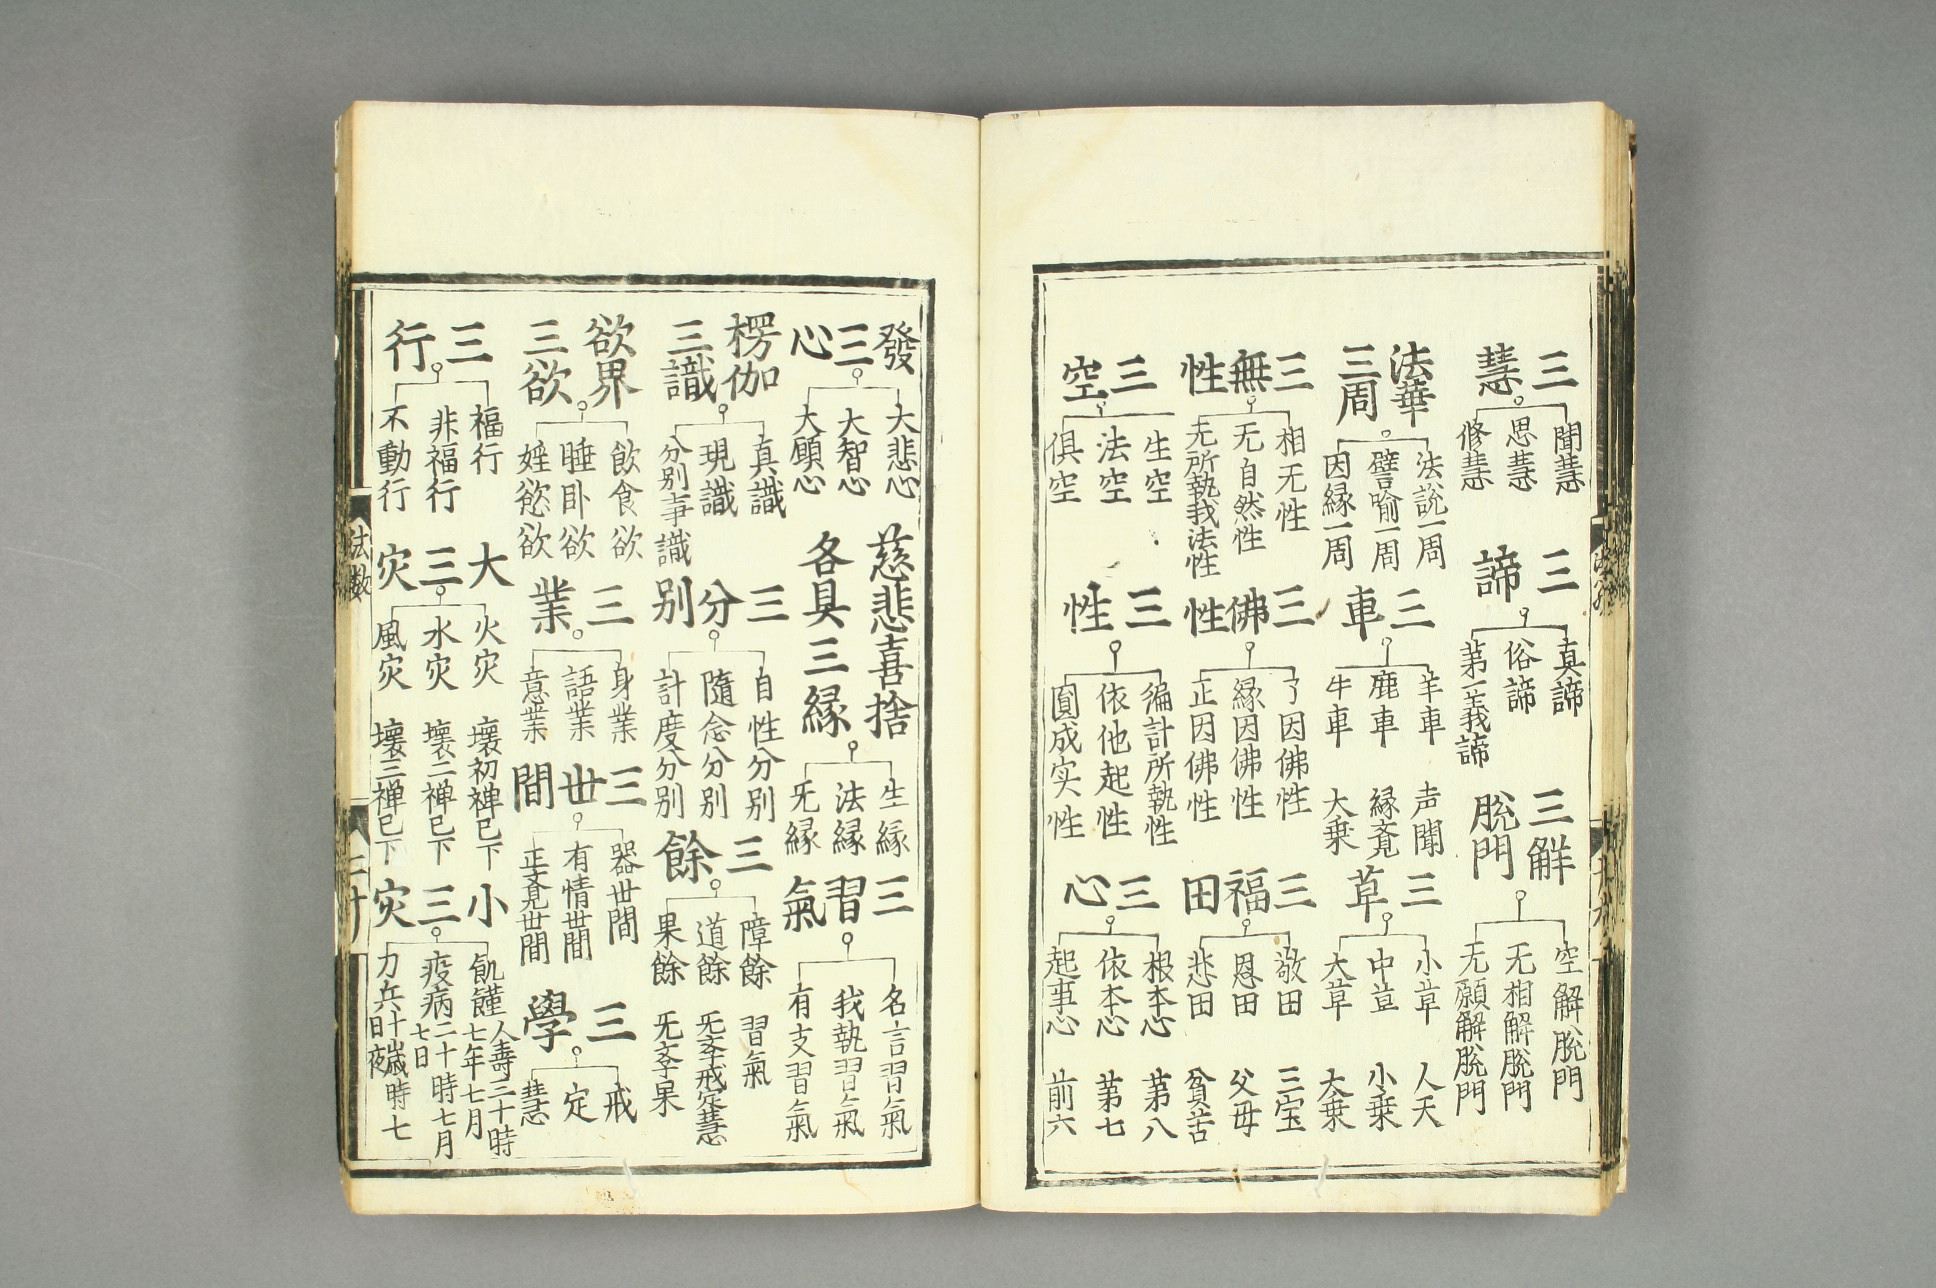 三慧
聞慧
思慧
修慧
三諦
真諦
俗諦
苐一義諦
三解脫門
空解脫門
无相解脫門
无願解脫門
法華三周
法說一周
譬喻一周
因緣一周
三車
羊車 声聞
鹿車 緣覔
牛車 大乗
三草
小草 人天
中草 小乗
大草 大乗
三無性
相无性
无自然性
无所執我法性
三佛性
了因佛性
緣因佛性
正因佛性
三福田
敬田 三宝
恩田 父母
悲田 貧苦
三空
生空
法空
俱空
三性
徧計所執性
依他起性
圓成实性
三心
根本心 苐八
依本心 苐七
起事心 前六
發三心
大悲心
大智心
大願心
慈悲喜捨各具三緣
生緣
法緣
无緣
三習氣
名言習氣
我執習氣
有支習氣
楞伽三識
真識
現識
分別事識
三分別
自性分別
隨念分別
計度分別
三餘
障餘 習氣
道餘 无孝戒定慧
果餘 无孝果
欲界三欲
飲食欲
睡卧欲
婬慾欲
三業
身業
語業
意業
三世間
器世間
有情世間
正覔世間
三學
戒
定
慧
三行
福行
非福行
不動行
大三灾
火灾 壞初禅已下
水灾 壞二禅已下
風灾 壞三禅已下
小三灾
飢饉 人壽三十時七年七月七日
疫病 二十時七月七日
刀兵 十歲時七日夜
法數
二十